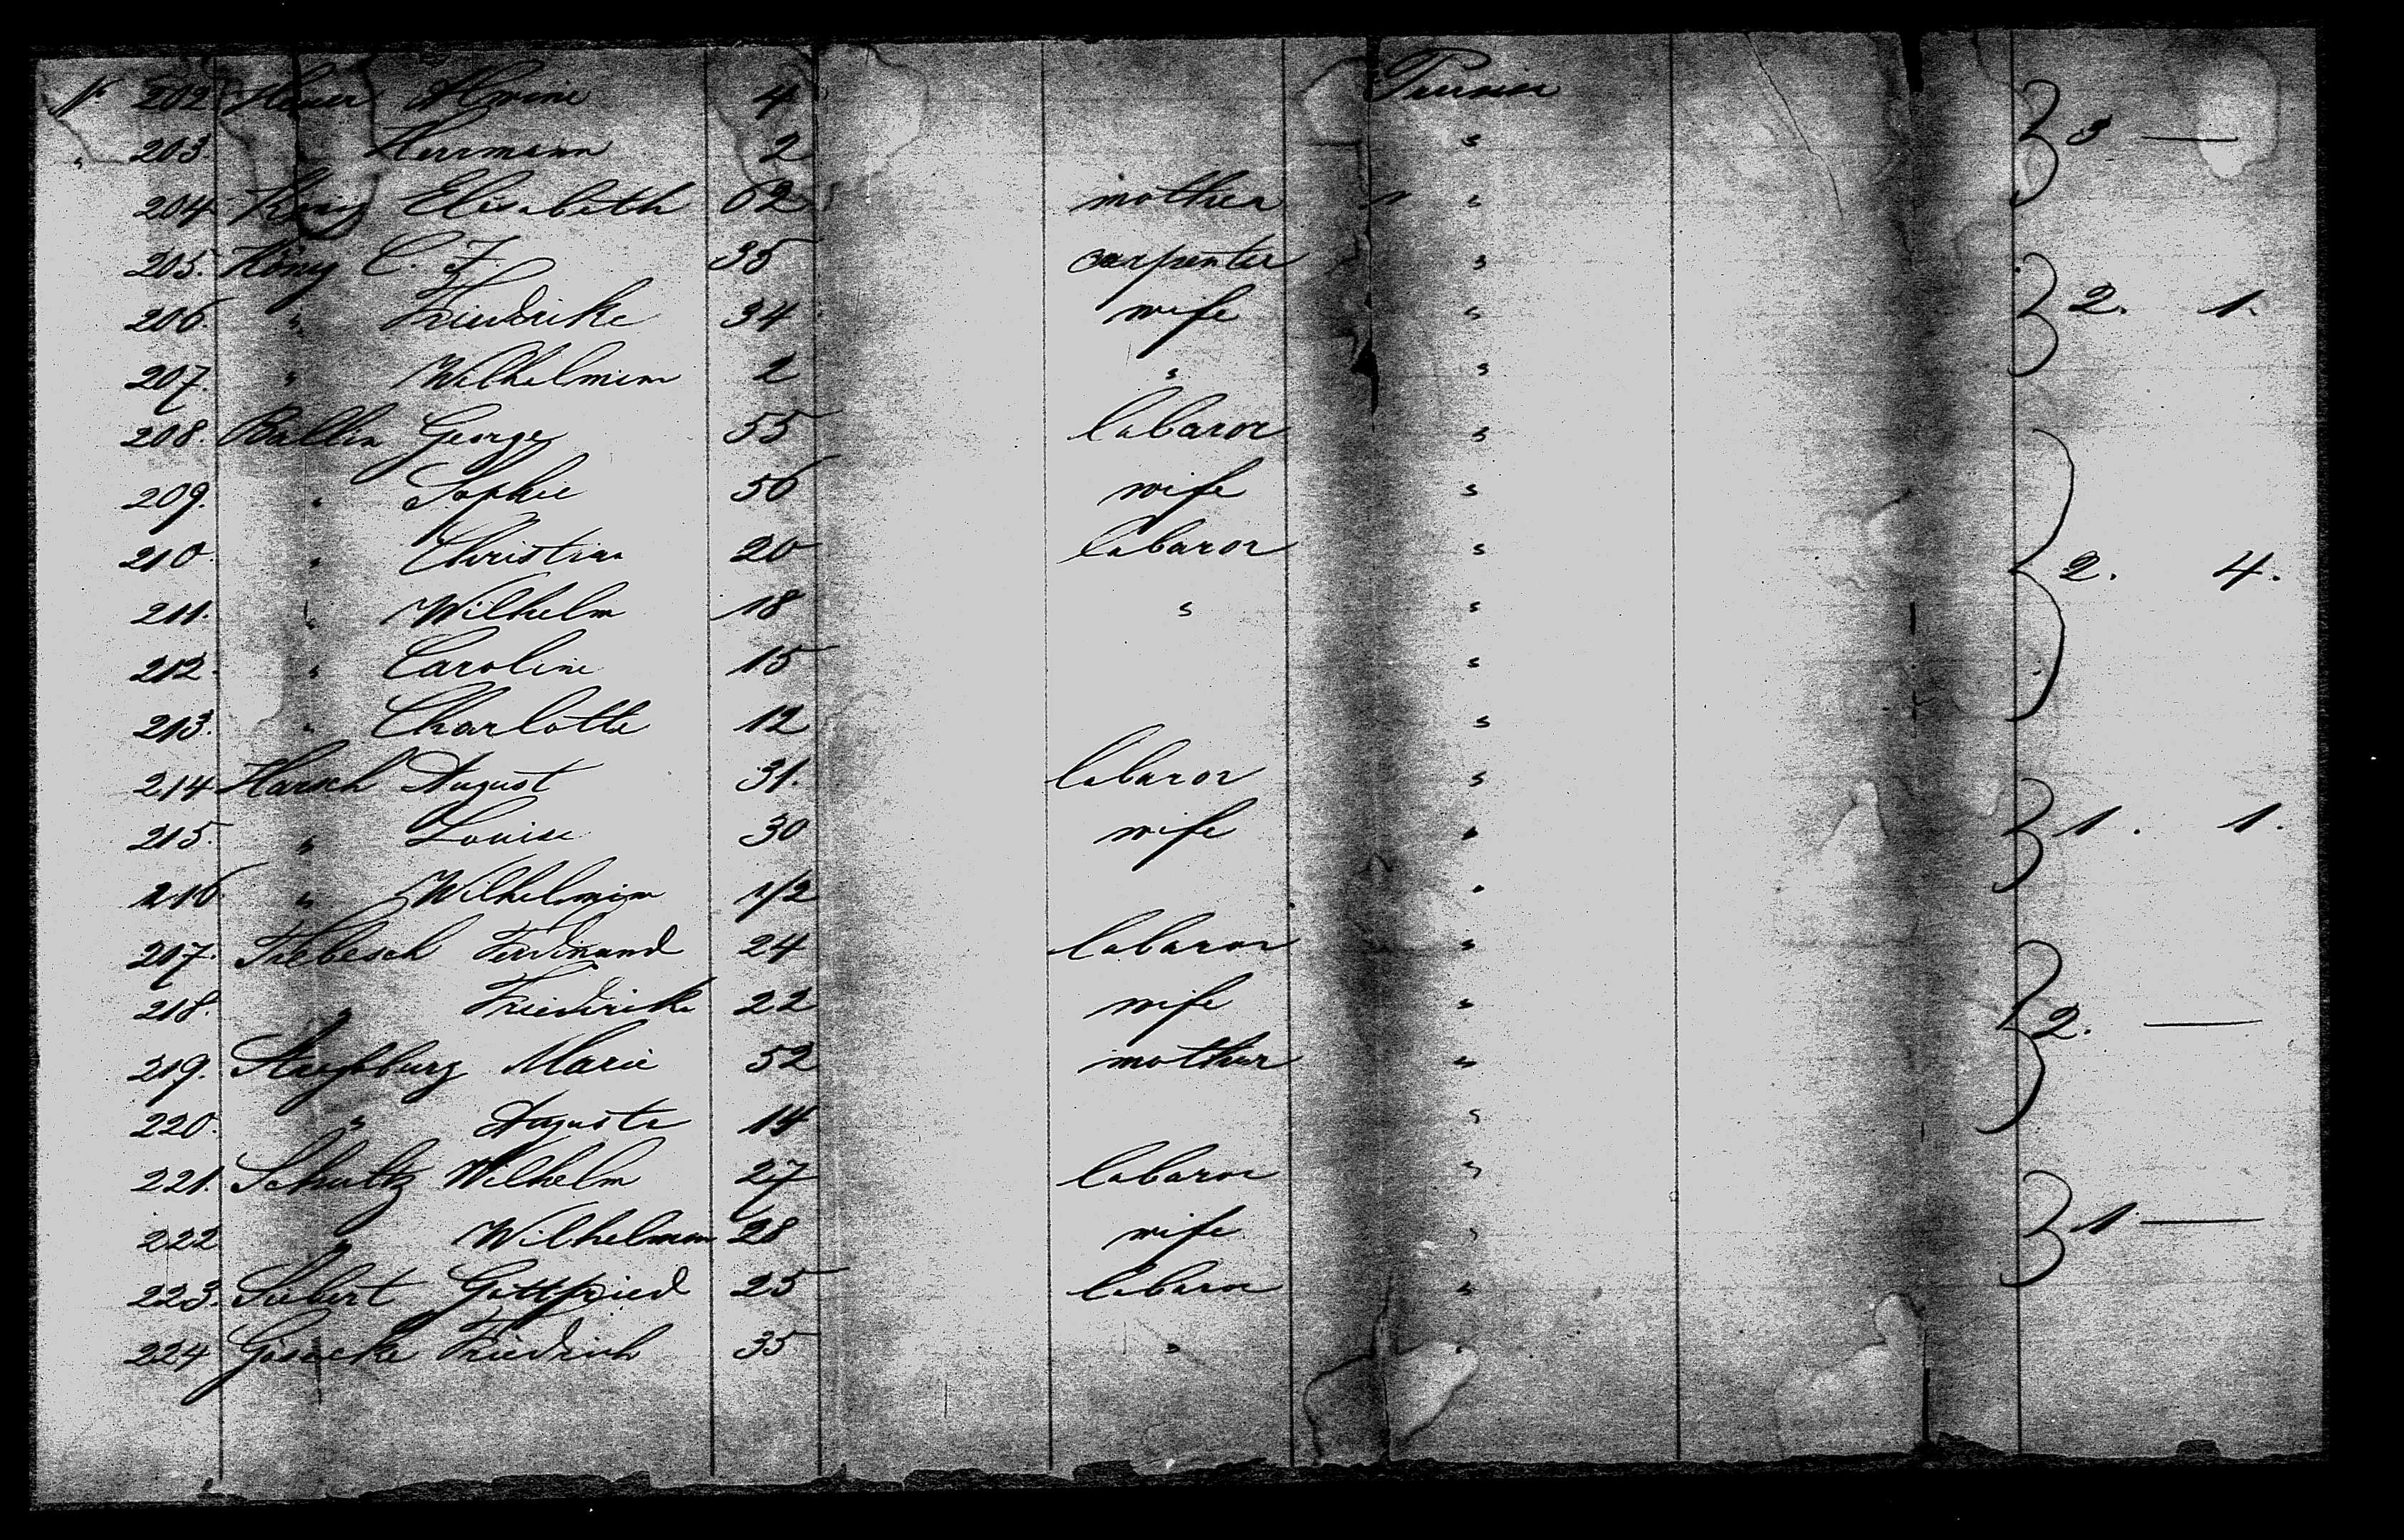 No 202 Heuer Alvine 4 Prussia
" 203. " Herrmann 2 " } 3 —
204 König Elisabeth 62 mother "
205. König C. F. 35 carpenter "
206. " Friedrike 34 wife " } 2. 1.
207. " Wilhelmine 2 " "
208. Ballin George 55 labaror "
209. " Sophie 56 wife "
210. " Christian 20 labaror " } 2. 4.
211. " Wilhelm 18 " "
212. " Caroline 15 "
213. " Charlotte 12 "
214 Harsch August 31. labaror "
215. " Louise 30 wife " } 1. 1.
216 " Wilhelmine 1/2 "
207. Ferdinand 24 labaror "
218. " Friedrike 22 wife " } 2. —
219. Marie 52 mother "
220. " Auguste 14 "
221. Schultz Wilhelm 27 labaror "
222 Wilhelmine 28 wife " } 1 —
223. Siebert Gottfried 25 labaror "
224 Gisecke Friedrich 35 " "